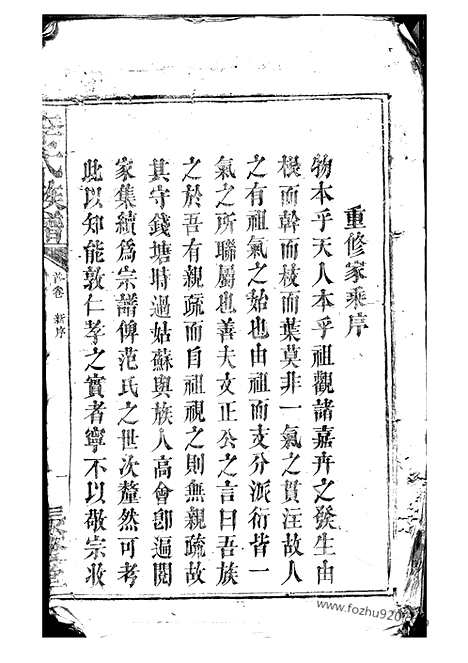 重修家乘序
物本乎天人本乎祖觀諸嘉卉之發生由
根而幹而枝而葉莫非一氣之貫注故人
之有祖氣之始也由祖而支分派衍皆一
氣之所聯屬也善夫文正公之言曰吾族
之於吾有親疏而自祖視之則無親疏故
其守錢塘時過姑蘇與族人高會卽遍閱
家集續爲宗譜俾范氏之世次釐然可考
此以知能敦仁孝之實者寧不以敬宗收
氏族譜
首卷 新序
堂
www.fozhu920.com